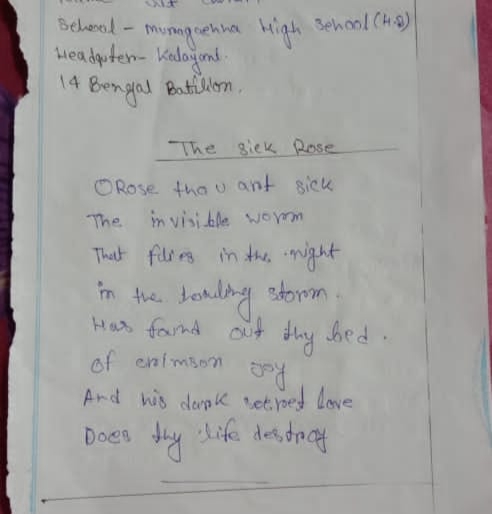 School - Muragachha High School (H.S)
Headquter- Kalayani.
14 Bengal Batilion.
The sick Rose
O Rose thou art sick
The invisible worm
That flies in the night
in the howling storm.
Has found out thy bed.
of crimson joy
And his dark secret love
Does thy life destroy